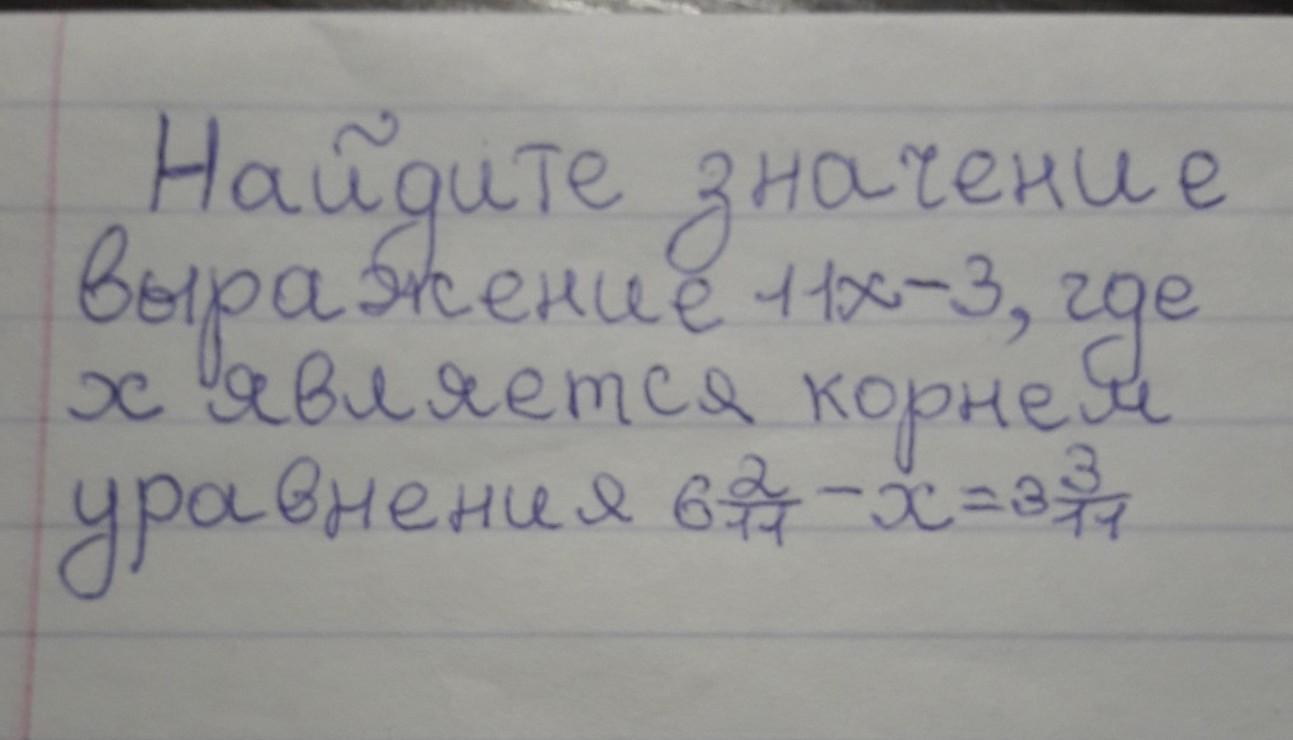 Найдите значение
выражение 11x-3, где
x является корнем
уравнения 6 2/11 - x = 3 3/11